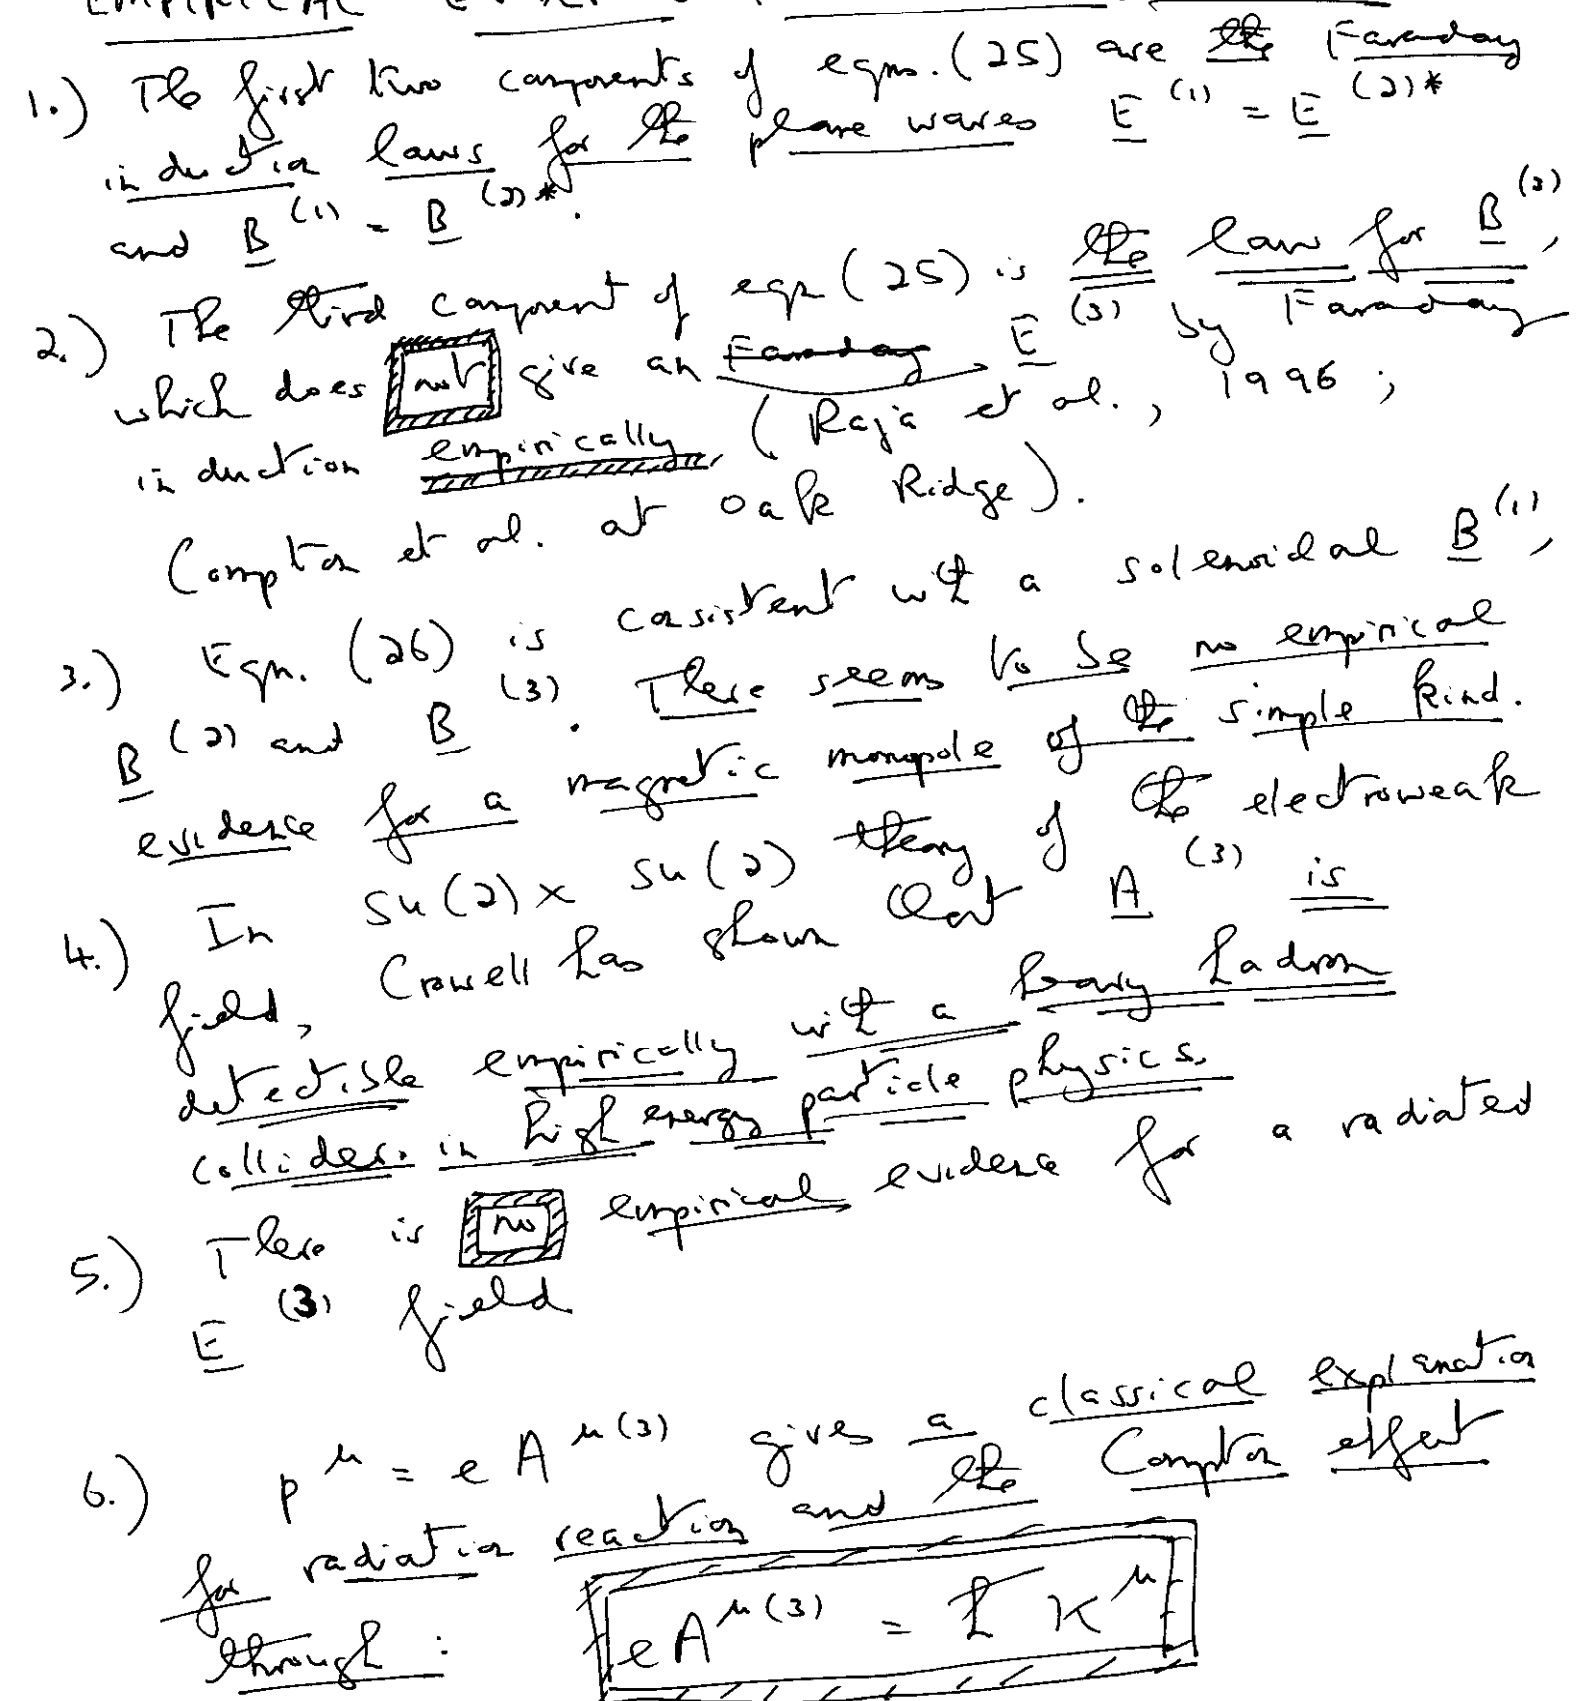 EMPIRICAL
1.) The first two components of eqns. (25) are the Faraday
induction laws for the plane waves E^(1) = E^(2)*
and B^(1) = B^(2)*.
2.) The third component of eqn (25) is the law for B^(3),
which does not give an Faraday E^(3) by Faraday
induction empirically (Raja et al., 1996;
Compton et al. at Oak Ridge).
3.) Eqn. (26) is consistent with a solenoidal B^(1),
B^(2) and B^(3). There seems to be no empirical
evidence for a magnetic monopole of the simple kind.
4.) In SU(2) x SU(2) theory of the electroweak
field, Crowell has shown that A^(3) is
detectible empirically with a heavy hadron
collider in high energy particle physics.
5.) There is no empirical evidence for a radiated
E^(3) field
6.) p^μ = e A^μ(3) gives a classical explanation
for radiation reaction and the Compton effect
through :
e A^μ(3) = ℏ κ^μ